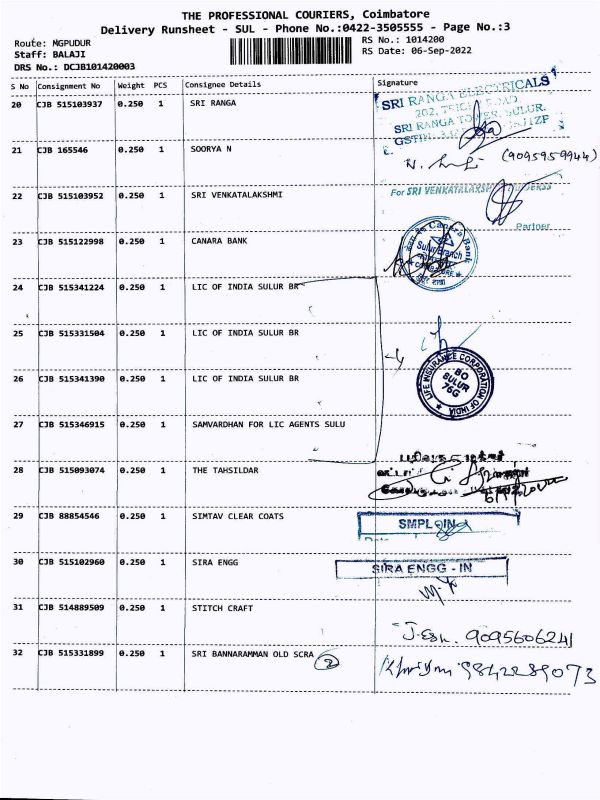 THE PROFESSIONAL COURIERS, Coimbatore
Delivery Runsheet - SUL - Phone No.:0422-3505555 - Page No.:3
Route: MGPUDUR
Staff: BALAJI
DRS No.: DCJB101420003
RS No.: 1014200
RS Date: 06-Sep-2022
S No Consignment No Weight PCS Consignee Details Signature
20 CJB 515103937 0.250 1 SRI RANGA
SRI RANGA ELECTRICALS
SRI RANGA TOWER, SULUR.
21 CJB 165546 0.250 1 SOORYA N (9095959944)
22 CJB 515103952 0.250 1 SRI VENKATALAKSHMI
For SRI
Partner
23 CJB 515122998 0.250 1 CANARA BANK
Canara Bank
Sulur Branch
24 CJB 515341224 0.250 1 LIC OF INDIA SULUR BR
25 CJB 515331504 0.250 1 LIC OF INDIA SULUR BR
26 CJB 515341390 0.250 1 LIC OF INDIA SULUR BR
LIFE INSURANCE CORPORATION OF INDIA
BO
SULUR
76G
27 CJB 515346915 0.250 1 SAMVARDHAN FOR LIC AGENTS SULU
28 CJB 515093074 0.250 1 THE TAHSILDAR
29 CJB 88854546 0.250 1 SIMTAV CLEAR COATS
SMPL-IN
30 CJB 515102960 0.250 1 SIRA ENGG
SIRA ENGG - IN
31 CJB 514889509 0.250 1 STITCH CRAFT
9095606241
32 CJB 515331899 0.250 1 SRI BANNARAMMAN OLD SCRA 2
9842289073